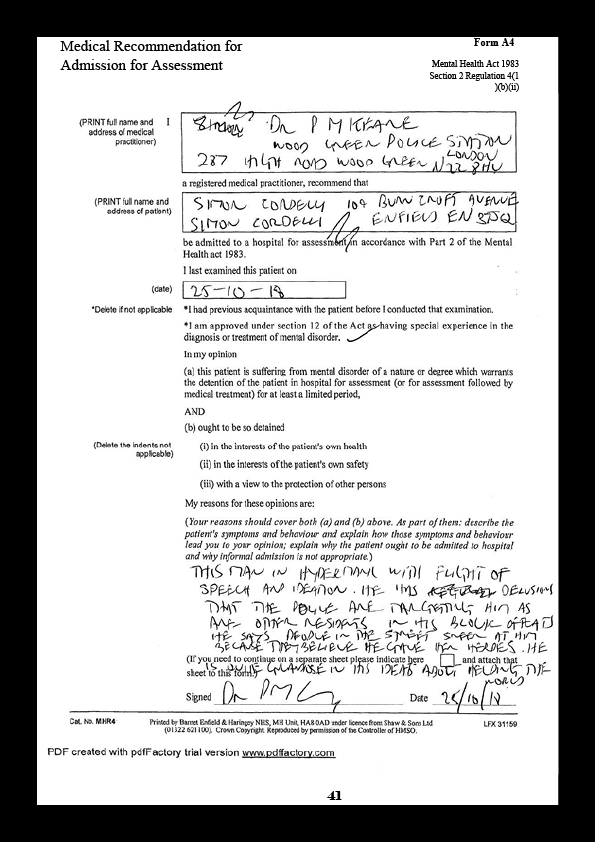 Medical Recommendation for
Admission for Assessment
Form A4
Mental Health Act 1983
Section 2 Regulation 4(1
)(b)(ii)
(PRINT full name and
address of medical
practitioner)
I
DR P M KEANE
WOOD GREEN POLICE STATION
287 HIGH ROAD WOOD GREEN LONDON
N22 8HU
a registered medical practitioner, recommend that
(PRINT full name and
address of patient)
SIMON CORDELL 109 BURNCROFT AVENUE
SIMON CORDELL ENFIELD EN3 7JQ
be admitted to a hospital for assessment in accordance with Part 2 of the Mental
Health act 1983.
I last examined this patient on
(date)
25-10-18
*Delete if not applicable
*I had previous acquaintance with the patient before I conducted that examination.
*I am approved under section 12 of the Act as having special experience in the
diagnosis or treatment of mental disorder.
In my opinion
(a) this patient is suffering from mental disorder of a nature or degree which warrants
the detention of the patient in hospital for assessment (or for assessment followed by
medical treatment) for at least a limited period,
AND
(b) ought to be so detained
(Delete the indents not
applicable)
(i) in the interests of the patient's own health
(ii) in the interests of the patient's own safety
(iii) with a view to the protection of other persons
My reasons for these opinions are:
(Your reasons should cover both (a) and (b) above. As part of them: describe the
patient's symptoms and behaviour and explain how those symptoms and behaviour
lead you to your opinion; explain why the patient ought to be admitted to hospital
and why informal admission is not appropriate.)
THIS MAN IN HYPERMANIC WITH FLIGHT OF
SPEECH AND IDEATION. HE HAS DELUSIONS
THAT THE POLICE ARE TARGETING HIM AS
ARE OTHER RESIDENTS IN HIS BLOCK OF FLATS
HE SAYS PEOPLE IN THE STREET SNEER AT HIM
BECAUSE THEY BELIEVE HE GAVE HER HERPES. HE
(If you need to continue on a separate sheet please indicate here and attach that
sheet to this form)
IS QUITE GRANDIOSE IN HIS IDEAS ABOUT HELPING THE
WORLD
Signed
Date 25/10/18
Cat. No. MHR4
Printed by Barnet Enfield & Haringey NHS, MH Unit, HA8 0AD under licence from Shaw & Sons Ltd
(01322 621100). Crown Copyright. Reproduced by permission of the Controller of HMSO.
LFX 31159
PDF created with pdfFactory trial version www.pdffactory.com
41